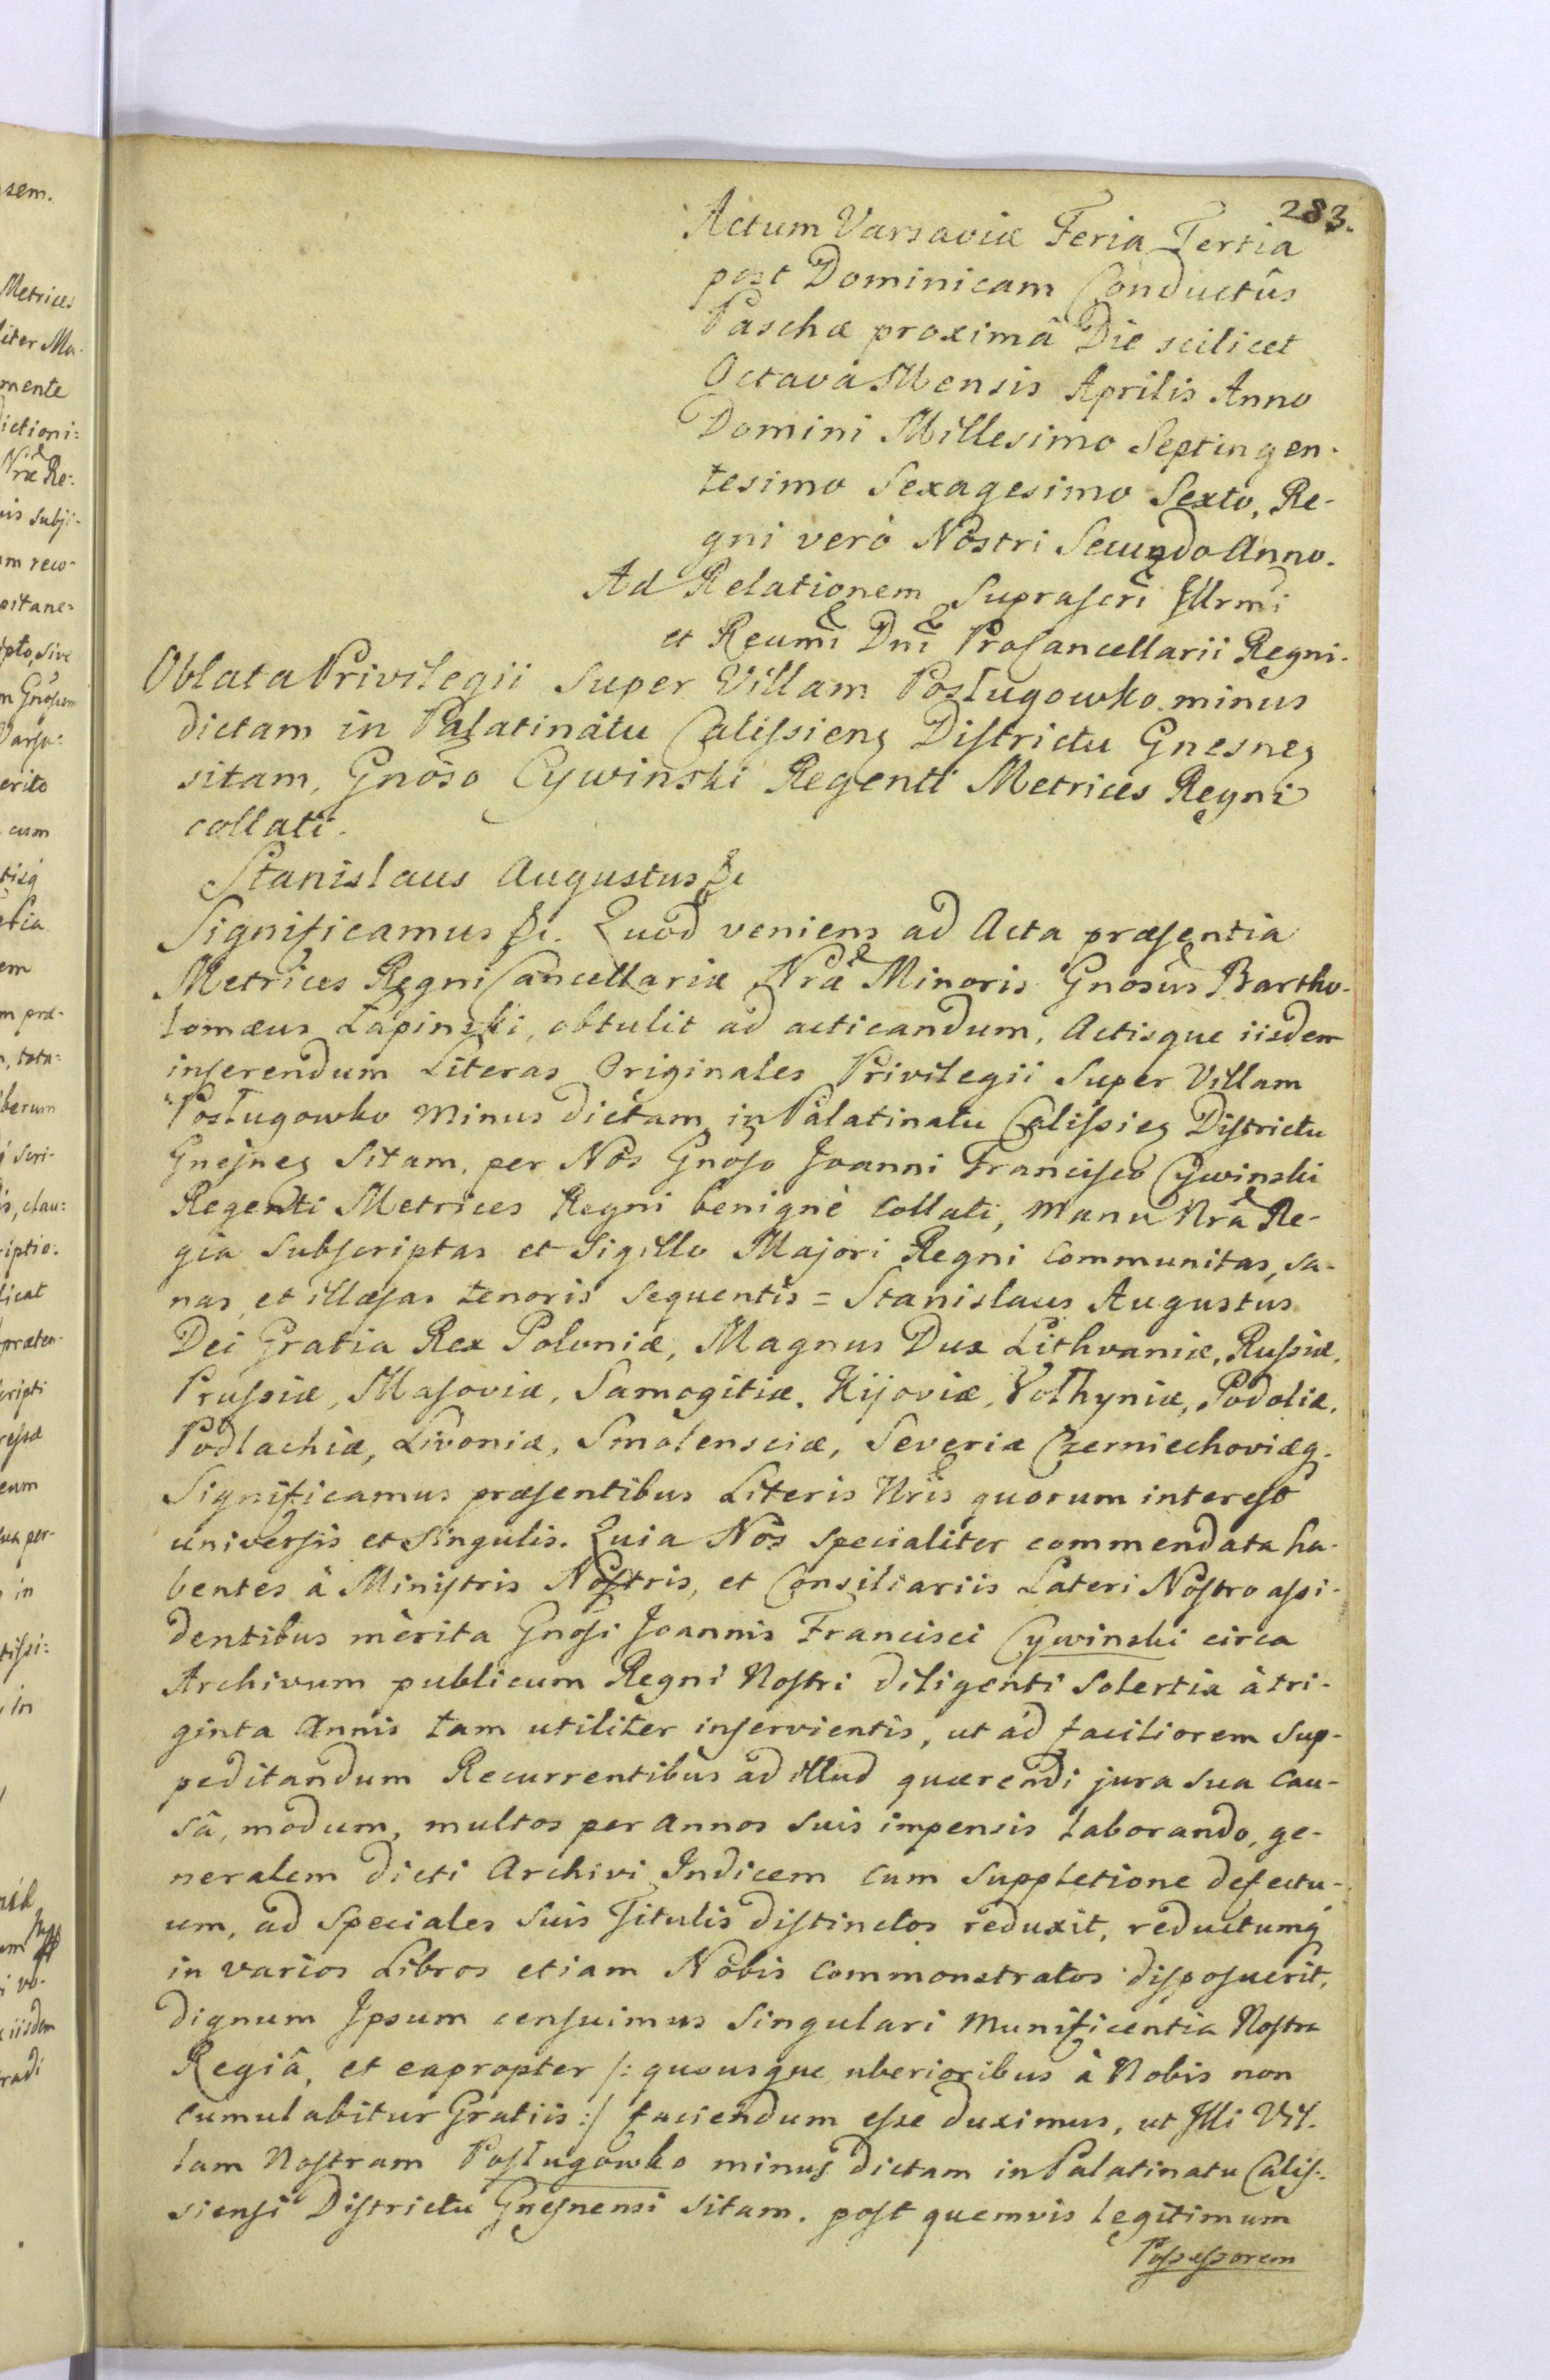 283.
Actum Varsaviæ Feria Tertia
post Dominicam Conductûs
Paschæ proximâ Die scilicet
Octavâ Mensis Aprilis Anno
Domini Millesimo Septingen-
tesimo Sexagesimo Sexto, Re-
gni verò Nostri Secundo Anno.
Ad Relationem Suprascri Illrmi
et Reumi Dni ProCancellarii Regni.
Oblata Privilegii Super Villam Posługowko minus
dictam in Palatinatu Calissieng Districtu Gnesneg
sitam, Gnoso Cywinski Regenti Metrices Regni
collati.
Stanislaus Augustus &c
Significamus &c. Quod veniens ad Acta præsentia
Metrices Regni Cancellariæ Nræ Minoris Gnosus Bartho-
lomæus Łapinski, obtulit ad acticandum, Actisque iisdem
inserendum Literas Originales Privilegii Super Villam
Posługowko minus dictam in Palatinatu Calissieg Districtu
Gnesneg Sitam, per Nos Gnoso Joanni Francisco Cywinski
Regenti Metrices Regni benignè Collati, Manu Nrâ Re-
gia Subscriptas et Sigillo Majori Regni Communitas, sa-
nas, et illæsas tenoris Sequentis = Stanislaus Augustus
Dei Gratia Rex Poloniæ, Magnus Dux Lithvaniæ, Russiæ,
Prussiæ, Masoviæ, Samogitiæ, Kijoviæ, Volhyniæ, Podoliæ,
Podlachiæ, Livoniæ, Smolensciæ, Severiæ Czerniechoviæq.
Significamus præsentibus Literis Nris quorum interest
universis et Singulis. Quia Nos Specialiter commendata ha-
bentes à Ministris Nostris, et Consiliariis Lateri Nostro assi-
dentibus merita Gnosi Joannis Francisci Cywinski circa
Archivum publicum Regni Nostri diligenti Solertia à tri-
ginta Annis tam utiliter inservientis, ut ad faciliorem Sup-
peditandum Recurrentibus ad illud quærendi jura sua Cau-
sâ, modum, multos per Annos suis impensis laborando, ge-
neralem dicti Archivi Indicem Cum Suppletione defectu-
um, ad Speciales Suis Titulis distinctos reduxit, reductumq
in varios Libros etiam Nobis Commonstratos disposuerit,
dignum Ipsum censuimus Singulari Munificentia Nostra
Regiâ, et eapropter /: quousque uberioribus à Nobis non
Cumulabitur Gratiis :/ faciendum esse duximus, ut Illi Vil-
lam Nostram Posługowko minus dictam in Palatinatu Calis-
siensi Districtu Gnesnensi Sitam, post quemvis legitimum
Possessorem